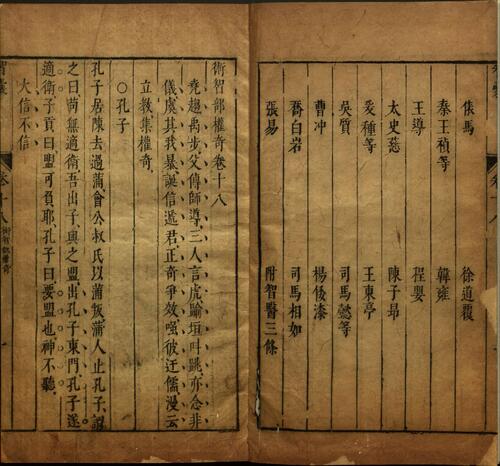 俵馬　徐道覆
秦王禎等　韓雍
王導　程嬰
太史慈　陳子昂
爰種等　王東亭
吳質　司馬懿等
曹冲　楊倭漆
喬白岩　司馬相如
張易　附智醫三條
術智部權奇卷十八
堯趨禹步父傳師導三人言虎踰垣叫跳亦念非
儀虞其我暴誕信遞君正奇爭效嗤彼迂儒漫云
立教集權奇
○孔子
孔子居陳去過蒲會公叔氏以蒲叛蒲人止孔子謂
之曰苟無適衛吾出子與之盟出孔子東門孔子遂
適衛子貢曰盟可負耶孔子曰要盟也神不聽
大信不信
卷十八